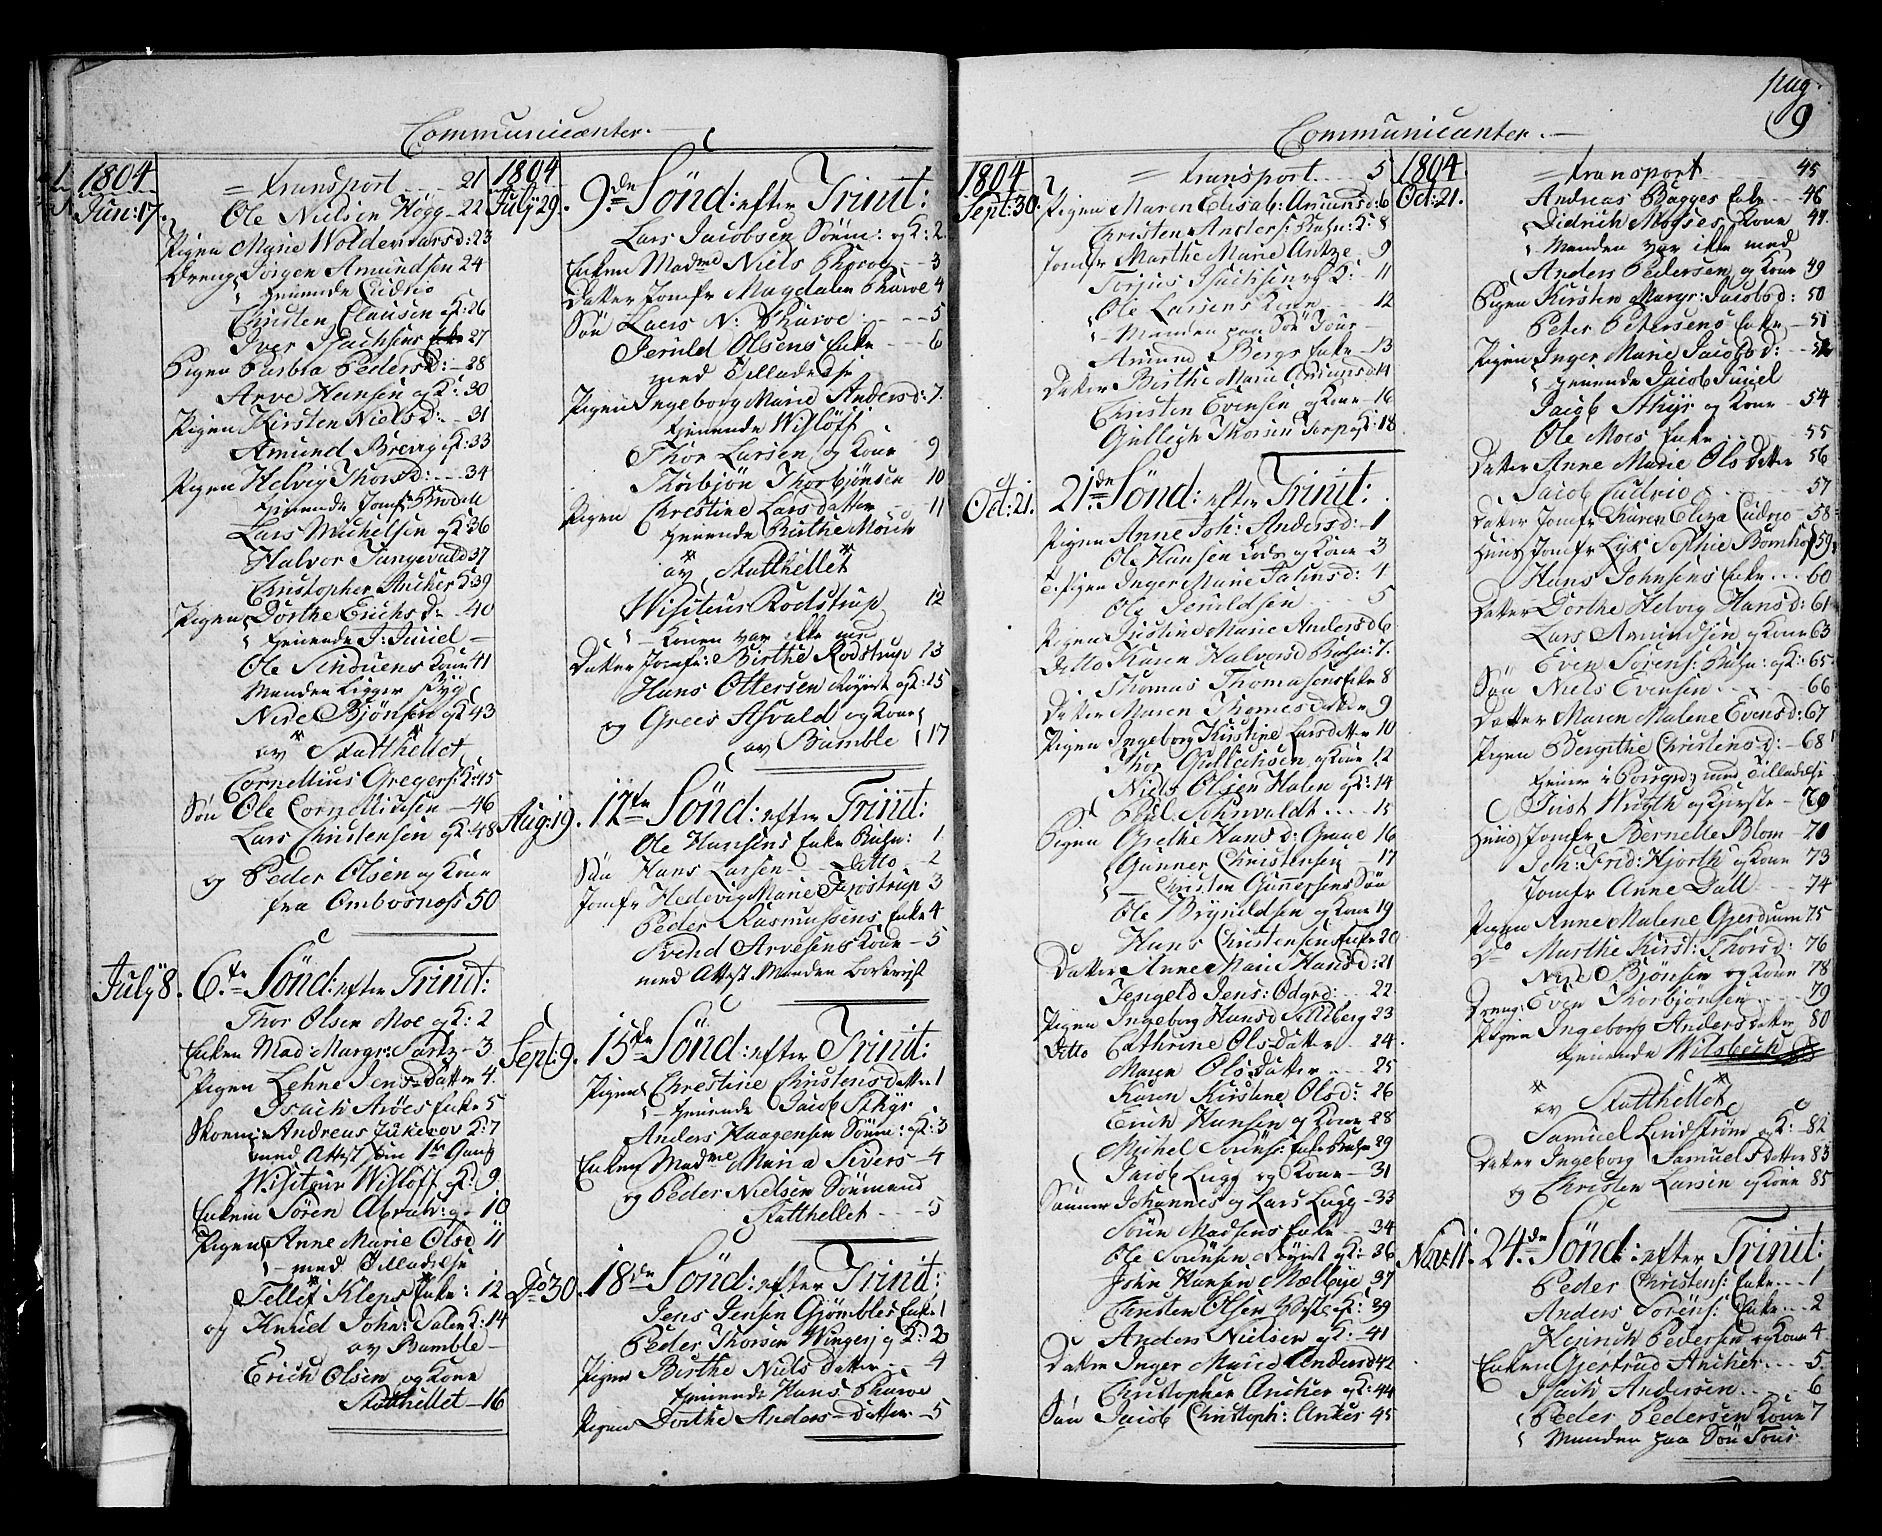 Communicanter.
1804
Jun: 17.
= transport 21
Ole Nielsen Høgg 22
Pigen Marie Woldemarsd: 23
Dreng Jørgen Amundsen 24
tjenende Cudrio
Christen Clausen o K: 26
Iver Isachsens 27
Pigen Barbra Pedersd: 28
Arve Hansen o K: 30
Pigen Kirsten Nielsd: 31
Amund Brevig K: 33
Pigen Helvig Thorsd: 34
tjenende Jomf:
Lars Michelsen o K: 36
Halvor Tangevald 37
Christopher Ancker K: 39
Pigen Dorthe Erichsd: 40
tjenende J: Juuel
Ole Kone 41
Manden ligger syg
Niri Bjønsen o K: 43
av Statthellet
Cornellius Gregers: K: 45
Søn Ole Cornelliusen 46
Lars Christensen o K: 48
og Peder Olsen og Kone
fra Ombosnæss 50
July 8. 6.te Sønd: efter Trinit:
Thor Olsen Moe o K: 2
Enken Mad: Margr: 3
Pigen Lehne Jens Datter 4.
Isach Aröes Enke 5
Andreas K: 7
med Attest den 1te Gang
Wisiteur Wisløff o K: 9
Enken Søren Abrah: 10
Pigen Anne Marie Olsd 11
med Tilladelse
Tellef Kleps Enke: 12
og Knud John: K: 14
av Bamble
Erich Olsen og Kone
Statthellet 16
1804
July 29. 9.de Sønd: efter Trinit:
Lars Jacobsen Sörm: o K: 2.
Enken Mad.me Niels 3
Datter Jomfr Magdalen 4
Søn Laers N: 5
Jeruld Olsens Enke 6
med Tilladelse
Pigen Ingeborg Marie Andersd: 7.
tjenende Wisløff
Thor Larsen og Kone 9
Thorbjön Thorbjönsen 10
Pigen Christine Larsdatter 11
tjenende Birthe Moen
av Statthellet
Wisiteur Rodstrup 12
Konen var ikke med
Datter Jomfr: Birthe Rodstrup 13
Hans Ottersen o K: 15
og Grees Asvald og Kone
av Bamble 17
Aug: 19. 12te Sønd: efter Trinit:
Ole Hansens Enke 1
Søn Hans Larsen Ditto 2
Jomfr Hedevig Marie 3
Peder Rasmussens Enke 4
Svend Arvesens Kone 5
med Attest Manden
Sept: 9. 15de Sønd: efter Trinit:
Pigen Christine Christensdatter 1
tjenende Jacob Sthyr
Anders Haagensen Sörm: o K: 3
Enken Mad.me Maria Sivers 4
og Peder Nielsen Sörmand
Statthellet 5
Do 30. 18de Sønd: efter Trinit:
Jens Jensen Gjömbles Enke 1
Peder Thorsen Winger, o K: 2
Pigen Birthe Niels Datter 4
tjenende Hans
Pigen Dorthe Anders Datter 5
pag. 9
Communicanter.
1804
Sept: 30.
= transport 5
Pigen Maren Elisab: Amunds d: 6
Christen Anders: K: 8
Jomfr Marthe Marie 9
Torjus Isachsen o K: 11
Ole Larsens Kone 12
Manden paa Søe Tour
Amund Bergs Enke 13
Datter Birthe Marie Amunds d 14
Christen Evensen og Kone 16
Gullegh o K: 18
Oct: 21. 21.de Sønd: efter Trinit:
Pigen Anne Joh: Andersd: 1
Ole Hansen og Kone 3
Pigen Inger Marie 4
Ole Jeruldsen 5
Pigen Justine Marie Andersd 6
Ditto Karen Halvorsd 7.
Thomas Thomasens Enke 8
Datter Maren Thomesdatter 9
Pigen Ingeborg Kirstine Larsdatter 10
Thor Gullichsen og Kone 12
Niels Olsen Halen o K: 14
15
Pigen Grethe Hans d: Graae 16
Gunner Christensen 17
Christen Gunnersens Søn
Ole Bryneldsen og Kone 19
Hans Christensen Enke 20
Datter Anne Marie Hansd: 21
Tengeld Jens: Odgrd: 22
Pigen Ingeborg Hansd 23
Ditto Cathrine Ols Datter 24
Maren Olsdatter 25
Karen Kirstine Olsd: 26
Erich Hansen og Kone 28
Michel Sörens: Enke 29
Jacob Lugg og Kone 31
Sønner Johannes og Lars Lugg 33
Sören Madsens Enke 34
Ole Sörensen o K: 36
John Hansen Melbye 37
Christen Olsen o K: 39
Anders Nielsen o K: 41
Datter Inger Marie Andersd 42
Christopher Ancher o K: 44
Søn Jacob Christoph: Anker 45
1804
Oct: 21.
= transport 45
Andreas Bagges Enke 46
Didrich Moyses Kone 47
Manden var ikke med
Anders Pedersen og Kone 49
Pigen Kirsten Margr: Jacobsd: 50
Peter Petersens Enke 51
Pigen Inger Marie Jacobsd: 52
tjenende Jacob Juuel
Jacob Sthyr og Kone 54
Ole Moes Enke 55
Datter Anne Marie Ols Datter 56
Jacob Cudrio 57
Datter Jomfr Karen Eliza Cudrio 58
Huus Jomfr Lyk Sophie Bomhof 59
Hans Johnsens Enke 60
Datter Dorthe Helvig Hansd: 61
Lars Amundsen og Kone 63
Even Sörens: o K: 65
Søn Niels Evensen 66
Datter Maren Malene Evensd: 67
Pigen Bergithe Christensd: 68
tjener i Porsgr: med Tilladelse
Just Wugth og Kjerste 70
Huus Jomfr Bernelle Blom 71
Joh: Frid: Hjorth og Kone 73
Jomfr Anne Dall 74
Pigen Anne Malene Gjerdrum 75
Do Marthe Kirst: Thorsd: 76
Niri Bjønsen og Kone 78
Dreng: Even Thorbjönsen 79
Pigen Ingeborg Andersdatter 80
tjenende Wilsbech
av Statthellet
Samuel Lindström o K: 82
Datter Ingeborg Samuels datter 83
og Christen Larsen og Kone 85
Nov: 11. 24.de Sønd: efter Trinit:
Peder Christens: Enke 1
Anders Sörens: Enke 2
Heinrich Pedersen og Kone 4
Enken Gjertrud Ancher 5.
Isach Andersen 6
Peder Pedersen Kone 7
Manden paa Søe Tour